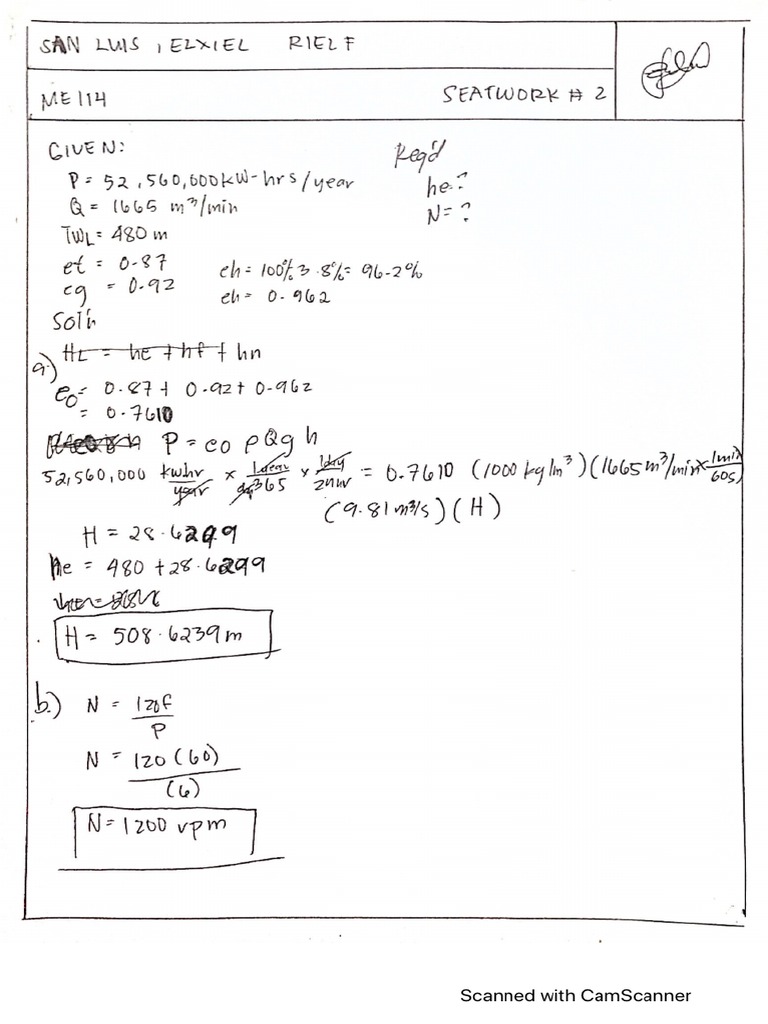 SAN LUIS , ELXIEL RIEL F
ME 114 SEATWORK # 2
GIVEN: Req'd
P = 52,560,000 kW-hrs/year he = ?
Q = 1665 m³/min N = ?
TWL = 480 m
et = 0.87 eh = 100% 3.8% = 96.2%
eg = 0.92 eh = 0.962
Sol'n
a.) HL = he + hf + hn
eo = 0.87 + 0.92 + 0.962
= 0.7610
P = eo ρQg h
52,560,000 kwhr/year × 1year/365 × 1day/24hr = 0.7610 (1000 kg/m³)(1665 m³/min × 1min/60s)
(9.81 m³/s)(H)
H = 28.6299
he = 480 + 28.6299
H = 508.6239 m
b.) N = 120f/P
N = 120(60)/(6)
N = 1200 rpm
Scanned with CamScanner